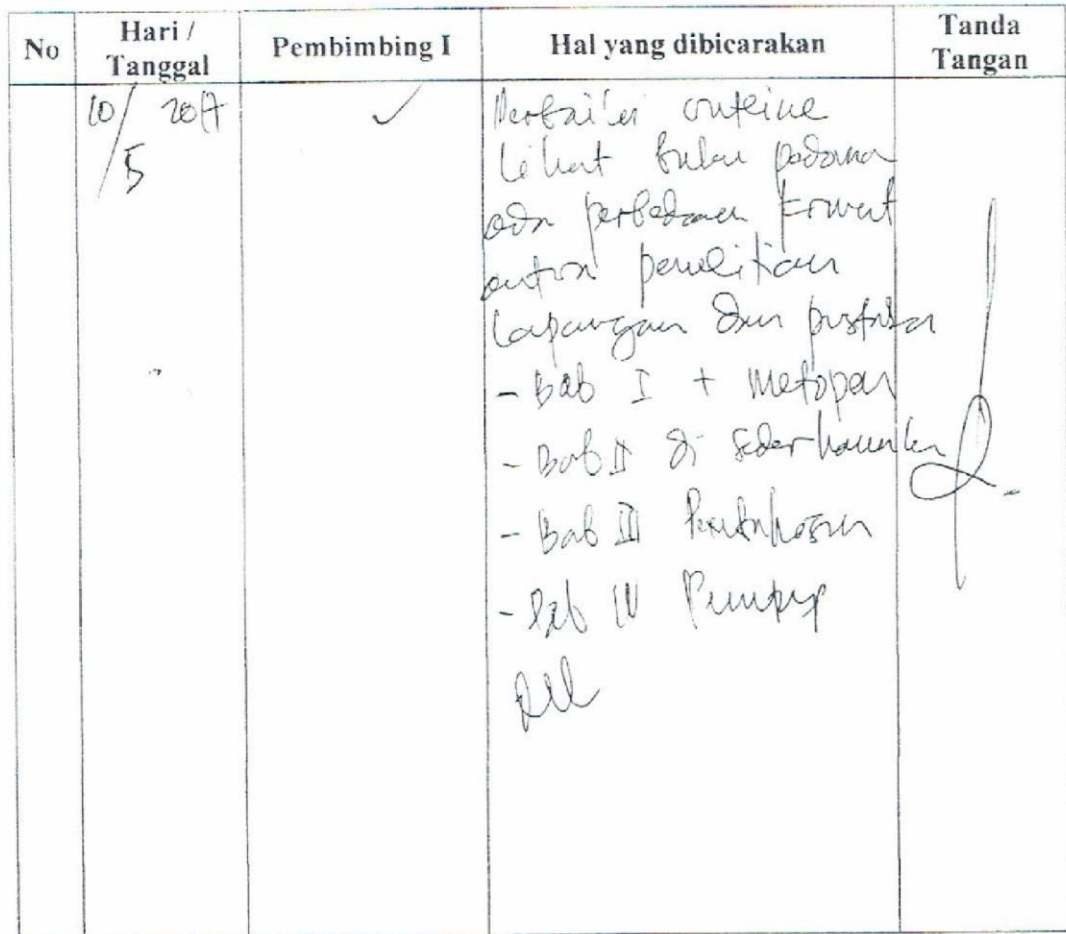 No
Hari /
Tanggal
Pembimbing I
Hal yang dibicarakan
Tanda
Tangan
10/5 2017
✓
Perbaiki outline
Lihat buku pedoman
ada perbedaan format
antara penelitian
lapangan dan pustaka
- Bab I + Metopen
- Bab II di sederhanakan
- Bab III Pembahasan
- Bab IV Penutup